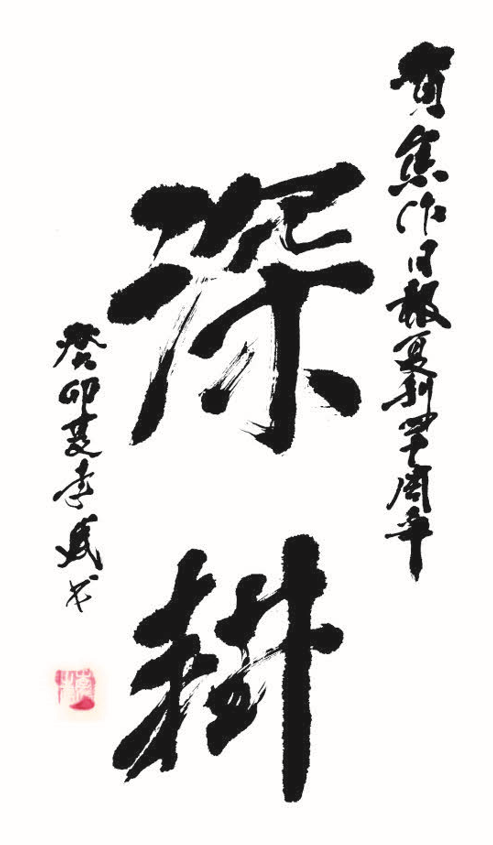 贺焦作日报复刊四十周年
深耕
癸卯夏李